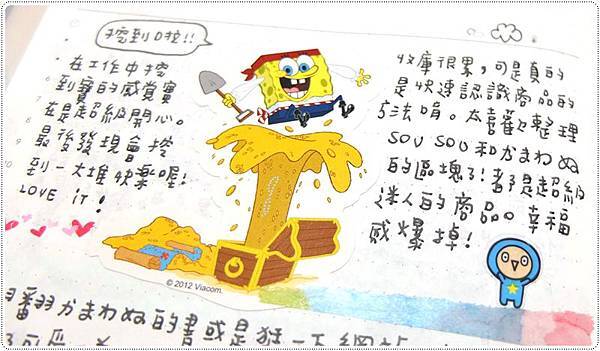 挖到啦!!
在工作中挖
到寶的感覺實
在是超級開心。
最後發現會挖
到一大堆快樂喔!
LOVE IT!
收庫很累,可是真的
是快速認識商品的
方法唷。太喜歡整理
SOU SOU和かまわぬ
的區塊了!都是超級
迷人的商品。幸福
感爆掉!
© 2012 Viacom.
翻かまわぬ的書或是逛一下網站